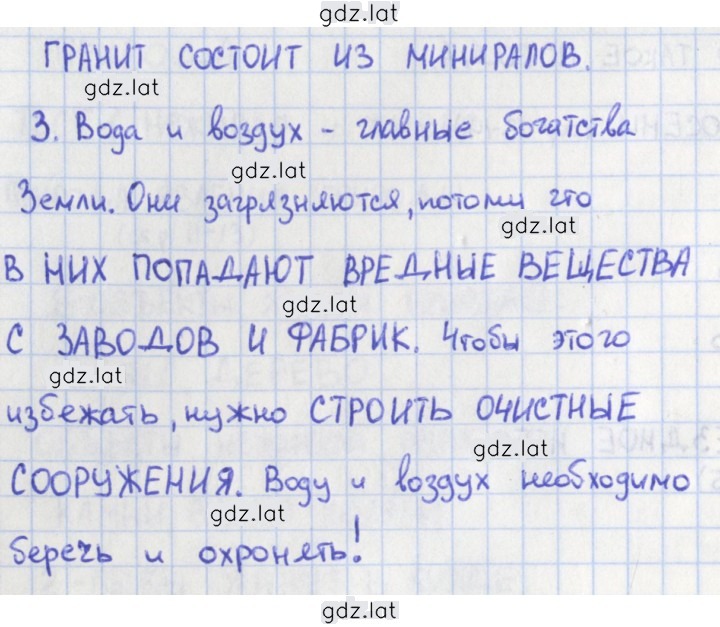 gdz.lat
ГРАНИТ СОСТОИТ ИЗ МИНИРАЛОВ.
gdz.lat
3. Вода и воздух - главные богатства
gdz.lat
Земли. Они загрязняются, потому что
gdz.lat
В НИХ ПОПАДАЮТ ВРЕДНЫЕ ВЕЩЕСТВА
gdz.lat
С ЗАВОДОВ И ФАБРИК. Чтобы этого
gdz.lat
избежать, нужно СТРОИТЬ ОЧИСТНЫЕ
gdz.lat
СООРУЖЕНИЯ. Воду и воздух необходимо
gdz.lat
беречь и охронять!
gdz.lat